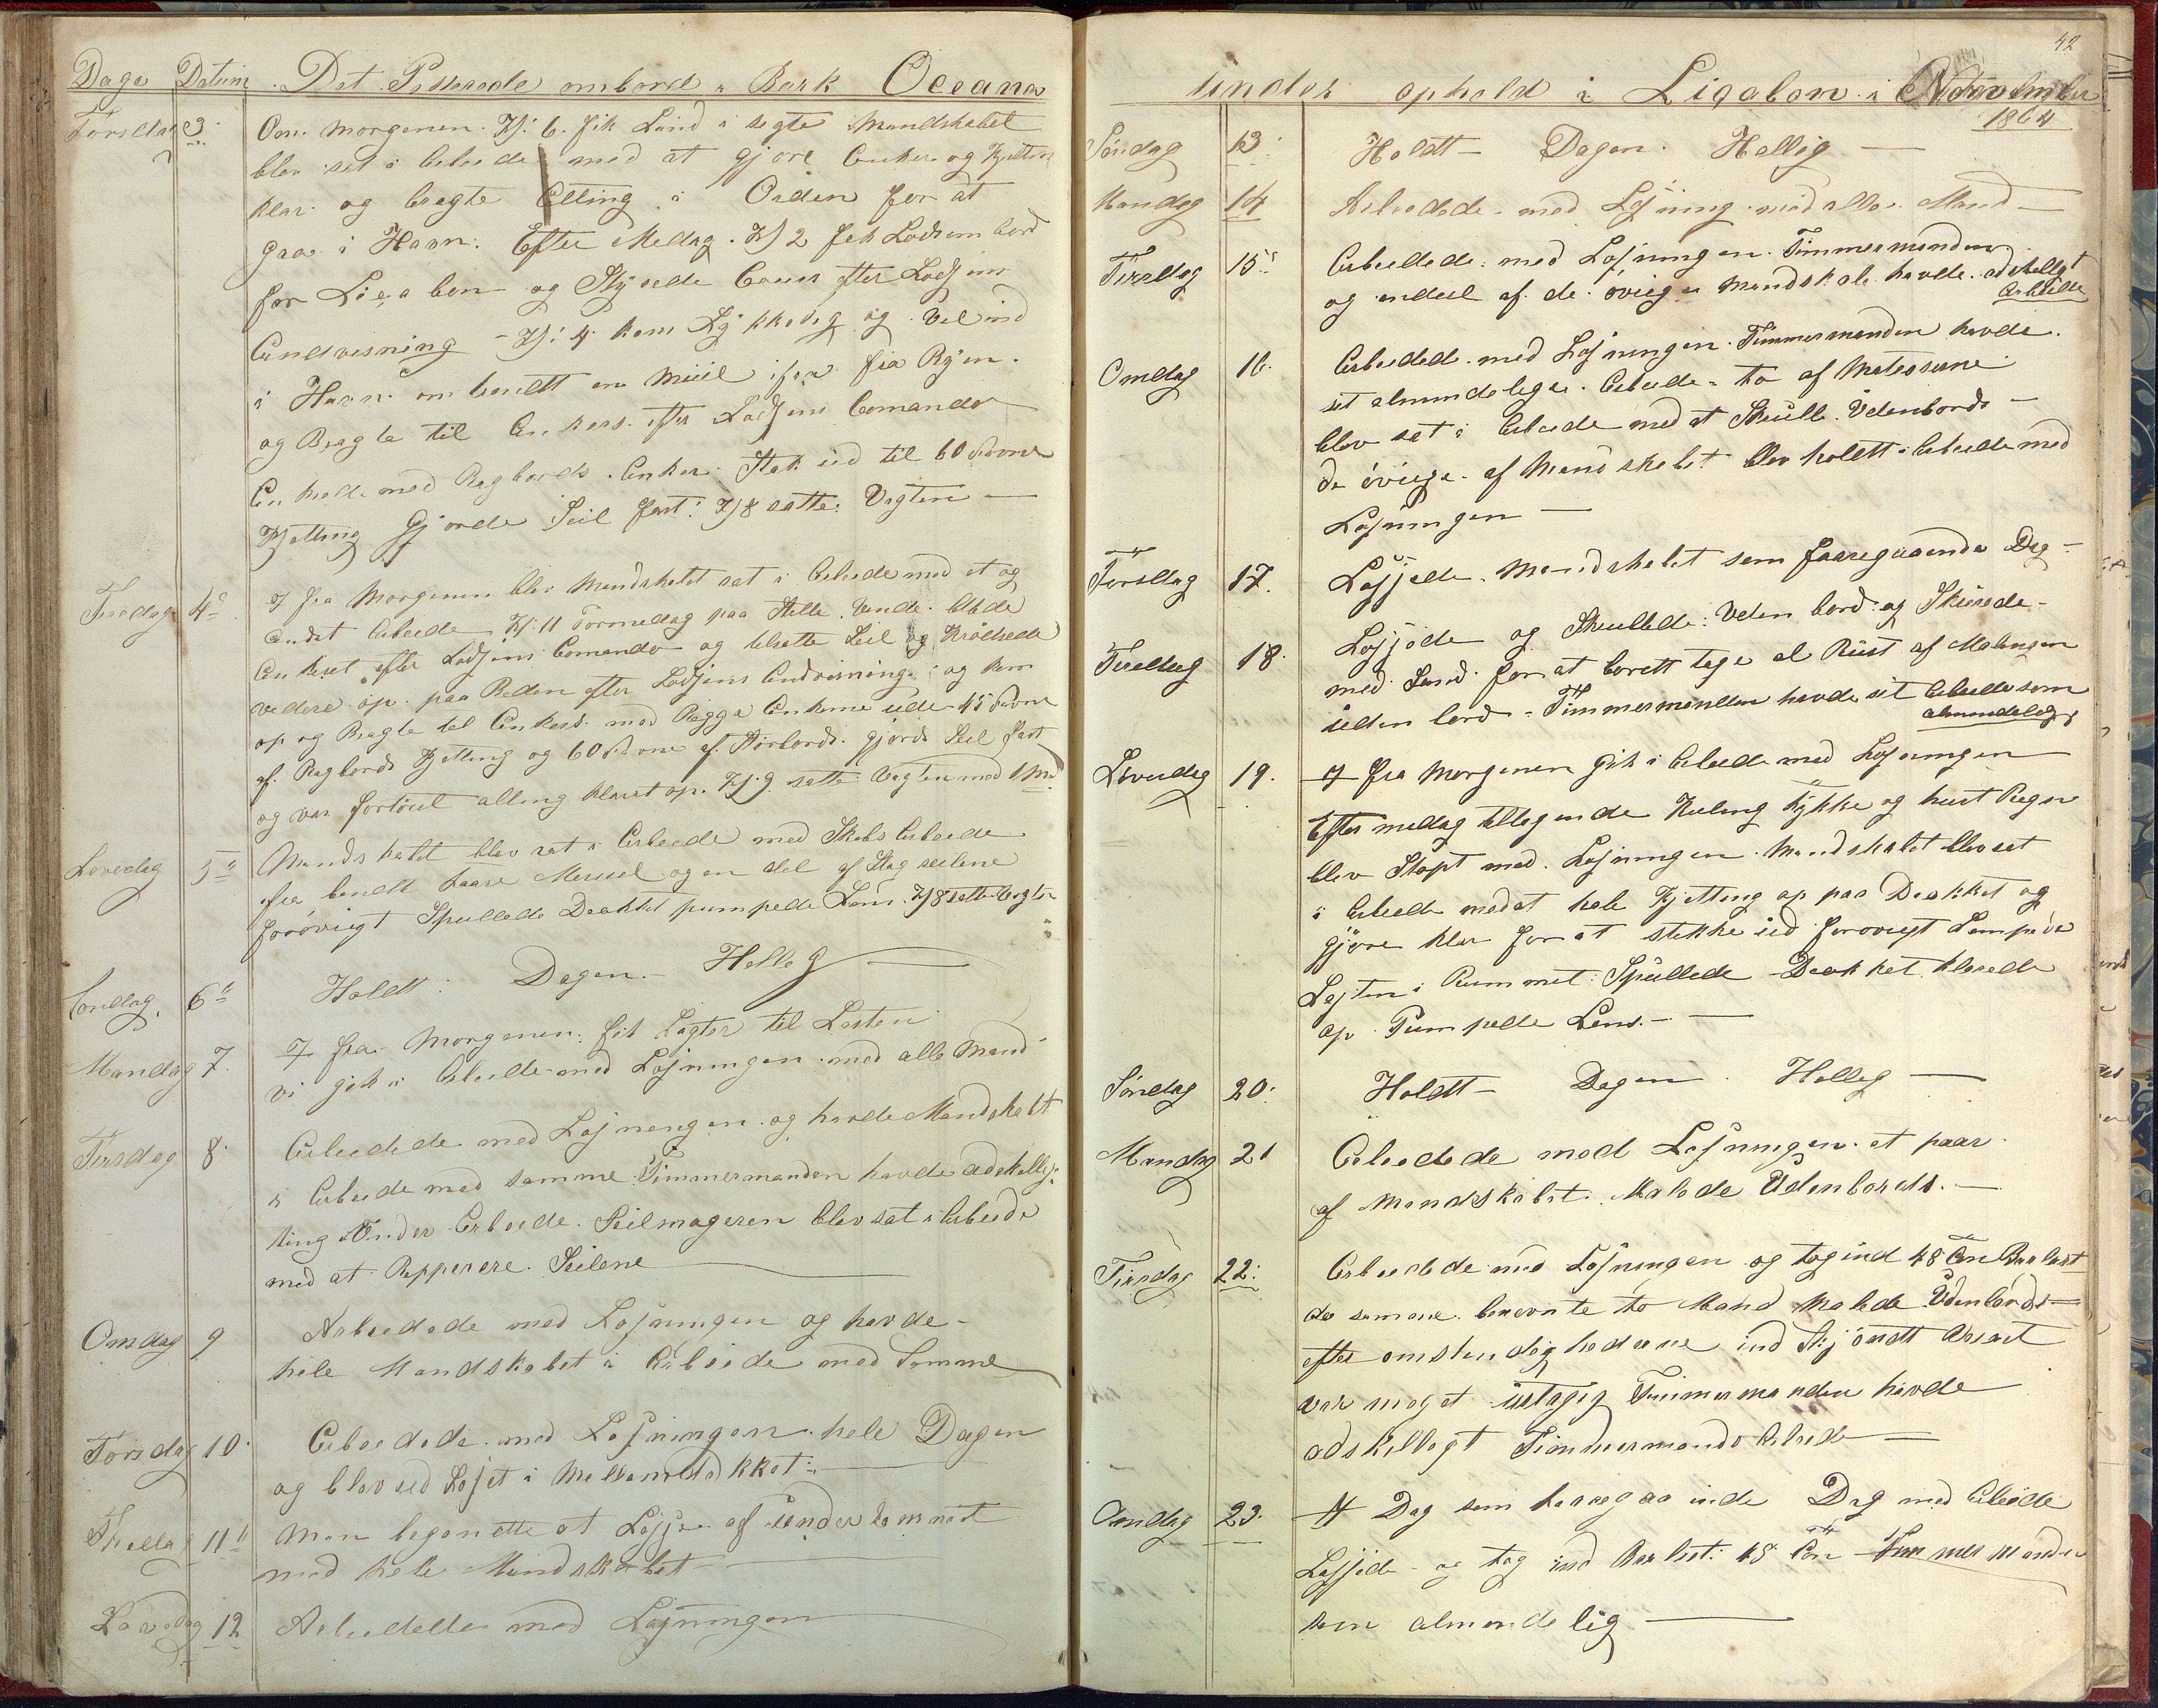 Dage Datum Det Passerede ombord i Bark Oceana
Torsdag 3. Om Morgenen Kl: 6 fik Land i sigte Mandskabet
blev sat i Arbeide med at gjøre Anker og Kjetting
klar og bragte Alting i Orden for at
gaa i Havn. Efter Meddag Kl 2 fik Lods om bord
for Lissabon og Styrede Cours efter Lodsens
Andvisning - Kl: 4 kom Lykkelig og Vel ind
i Havn omtrendt en Miil ifra Byen
og Bragte til Ankers efter Lodsens Comando
Ankrede med Bagbords Anker. Stak ud til 60 Favne
Kjetting Gjorde Seil fast: Kl 8 satte Vagten —
Fredag 4de fra Morgenen blev Mandskabet sat i Arbeide med et og
andet Arbeide Kl: 11 Formedag paa Stille Vande lettede
Ankeret efter Lodsens Comando og tilsatte Seil og Krydsede
videre op paa Reden efter Lodsens Andvisning og kom
op og Bragte til Ankers med Begge Ankerne ude 45 Favne
af Bagbords Kjetting og 60 Favne af Stirbords gjorde Seil fast
og var fortøiet alting klaret op. Kl: 9 satte Vagten med 1 Md
Løverdag 5te Mandskabet blev sat i Arbeide med Skibs Arbeide
fra bendte Mersseil og en del af Stag seilene
forøvrigt Spullede Dækket pumpede Lens. Kl 8 satte Vagten
Søndag 6te Holdt: Dagen. Hellig —
Mandag 7. fra Morgenen: fik Lægter til Lasten
vi gik i Arbeide med Losningen med alle Mand
Tirsdag 8. Arbeidede med Losningen og havde Mandskabet
i Arbeide med samme: Timmermanden havde adskellige
ting under Arbeide. Seilmageren blev sat i Arbeide
med at Repperere Seilene —
Onsdag 9 Arbeidede med Losningen og havde -
hele Mandskabet i Arbeide med Samme
Torsdag 10. Arbeidede med Losningen hele Dagen
og blev ud Losset i Mellemdækket: —
Fredag 11te Man begyndte at Losse af under rommet
med hele Mandskabet —
Løverdag 12 Arbeidede med Losningen —
42
under ophold i Lissabon i November
1864
Søndag 13. Holdt - Dagen. Hellig —
Mandag 14 Arbeidede med Losning med alle Mand —
Tirsdag 15de Arbeidede med Losningen. Timmermanden
og endeel af de øvrige Mandskab havde adskelligt
Arbeide
Onsdag 16. Arbeidede med Losningen. Timmermanden havde
sit almindelige Arbeide to af Matroserne
blev sat i Arbeide med at Skulle Udenbords -
de øvrige af Mandskabet blev holdt i Arbeide med
Losningen —
Torsdag 17. Lossede Mandskabet som foregaaende Dag -
Fredag 18. Lossede og Skullede Uden bord og Skurede -
med Sand for at bortt tage al Rust af Malingen
uden bord - Timmermanden havde sit Arbeide som
almindelig
Løverdag 19. fra Morgenen gik i Arbeide med Losningen
Eftermedag tiltagende Kuling tykke og trust Regn
blev Stopt med Losningen Mandskabet blev sat
i Arbeide med at hale Kjetting op paa Dækket og
gjøre klar for at stikke ud forøvrigt Lempede
Lasten i Rummet Spullede Dækket klarede
op Pumpede Lens. —
Søndag 20. Holdt - Dagen. Hellig —
Mandag 21 Arbeidede med Losningen et paar
af Mandskabet Malede Udenbords. —
Tirsdag 22. Arbeidede med Losningen og tog ind 48 Ton Barlast
de samme benevnte to Mand malede Udenbords -
efter omstendighederne ind
var meget Timmermanden havde
adskelligt Timmermands Arbeide —
Onsdag 23. Dag som foregaaende Dag med Arbeide
Lossede og tog ind Barlast: 48 Ton Timmermanden
som almindelig —